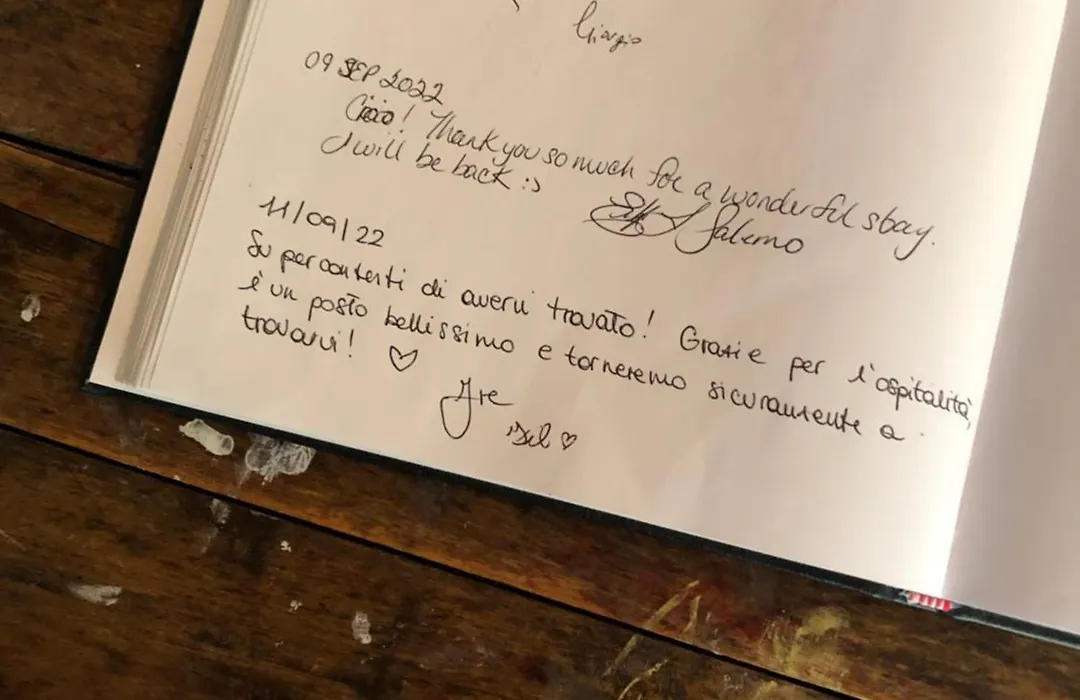 Giorgio
09 SEP 2022
Ciao! Thank you so much for a wonderful stay.
I will be back :)
Salerno
11/09/22
Super contenti di avervi trovato! Grazie per l'ospitalità,
è un posto bellissimo e torneremo sicuramente a
trovarvi! ♡
♡